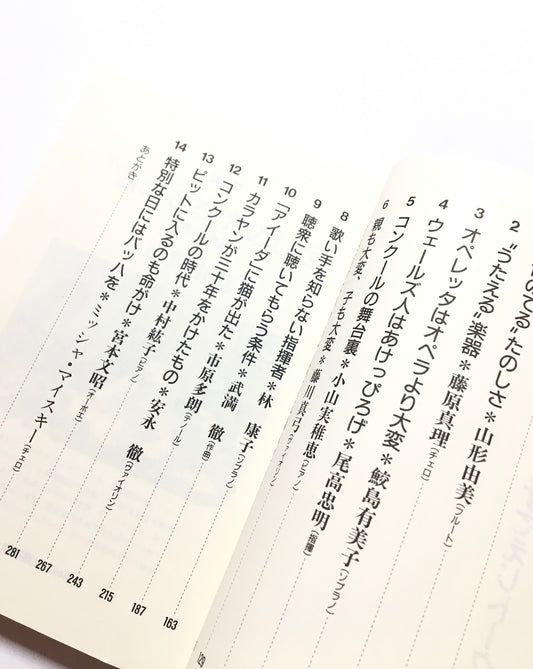 のでる”たのしさ＊山形由美(フルート)
2 “うたえる”楽器＊藤原真理(チェロ)
3 オペレッタはオペラより大変＊鮫島有美子(ソプラノ)
4 ウェールズ人はあけっぴろげ＊尾高忠明(指揮)
5 コンクールの舞台裏＊小山実稚恵(ピアノ)
6 親も大変、子も大変＊藤川真弓(ヴァイオリン)
8 歌い手を知らない指揮者＊林　康子(ソプラノ)
9 聴衆に聴いてもらう条件＊武満　徹(作曲)
10 「アイーダ」に猫が出た＊市原多朗(テノール)
11 カラヤンが三十年をかけたもの＊安永　徹(ヴァイオリン) 163
12 コンクールの時代＊中村紘子(ピアノ) 187
13 ピットに入るのも命がけ＊宮本文昭(オーボエ) 215
14 特別な日にはバッハを＊ミッシャ・マイスキー(チェロ) 243
あとがき 267
281